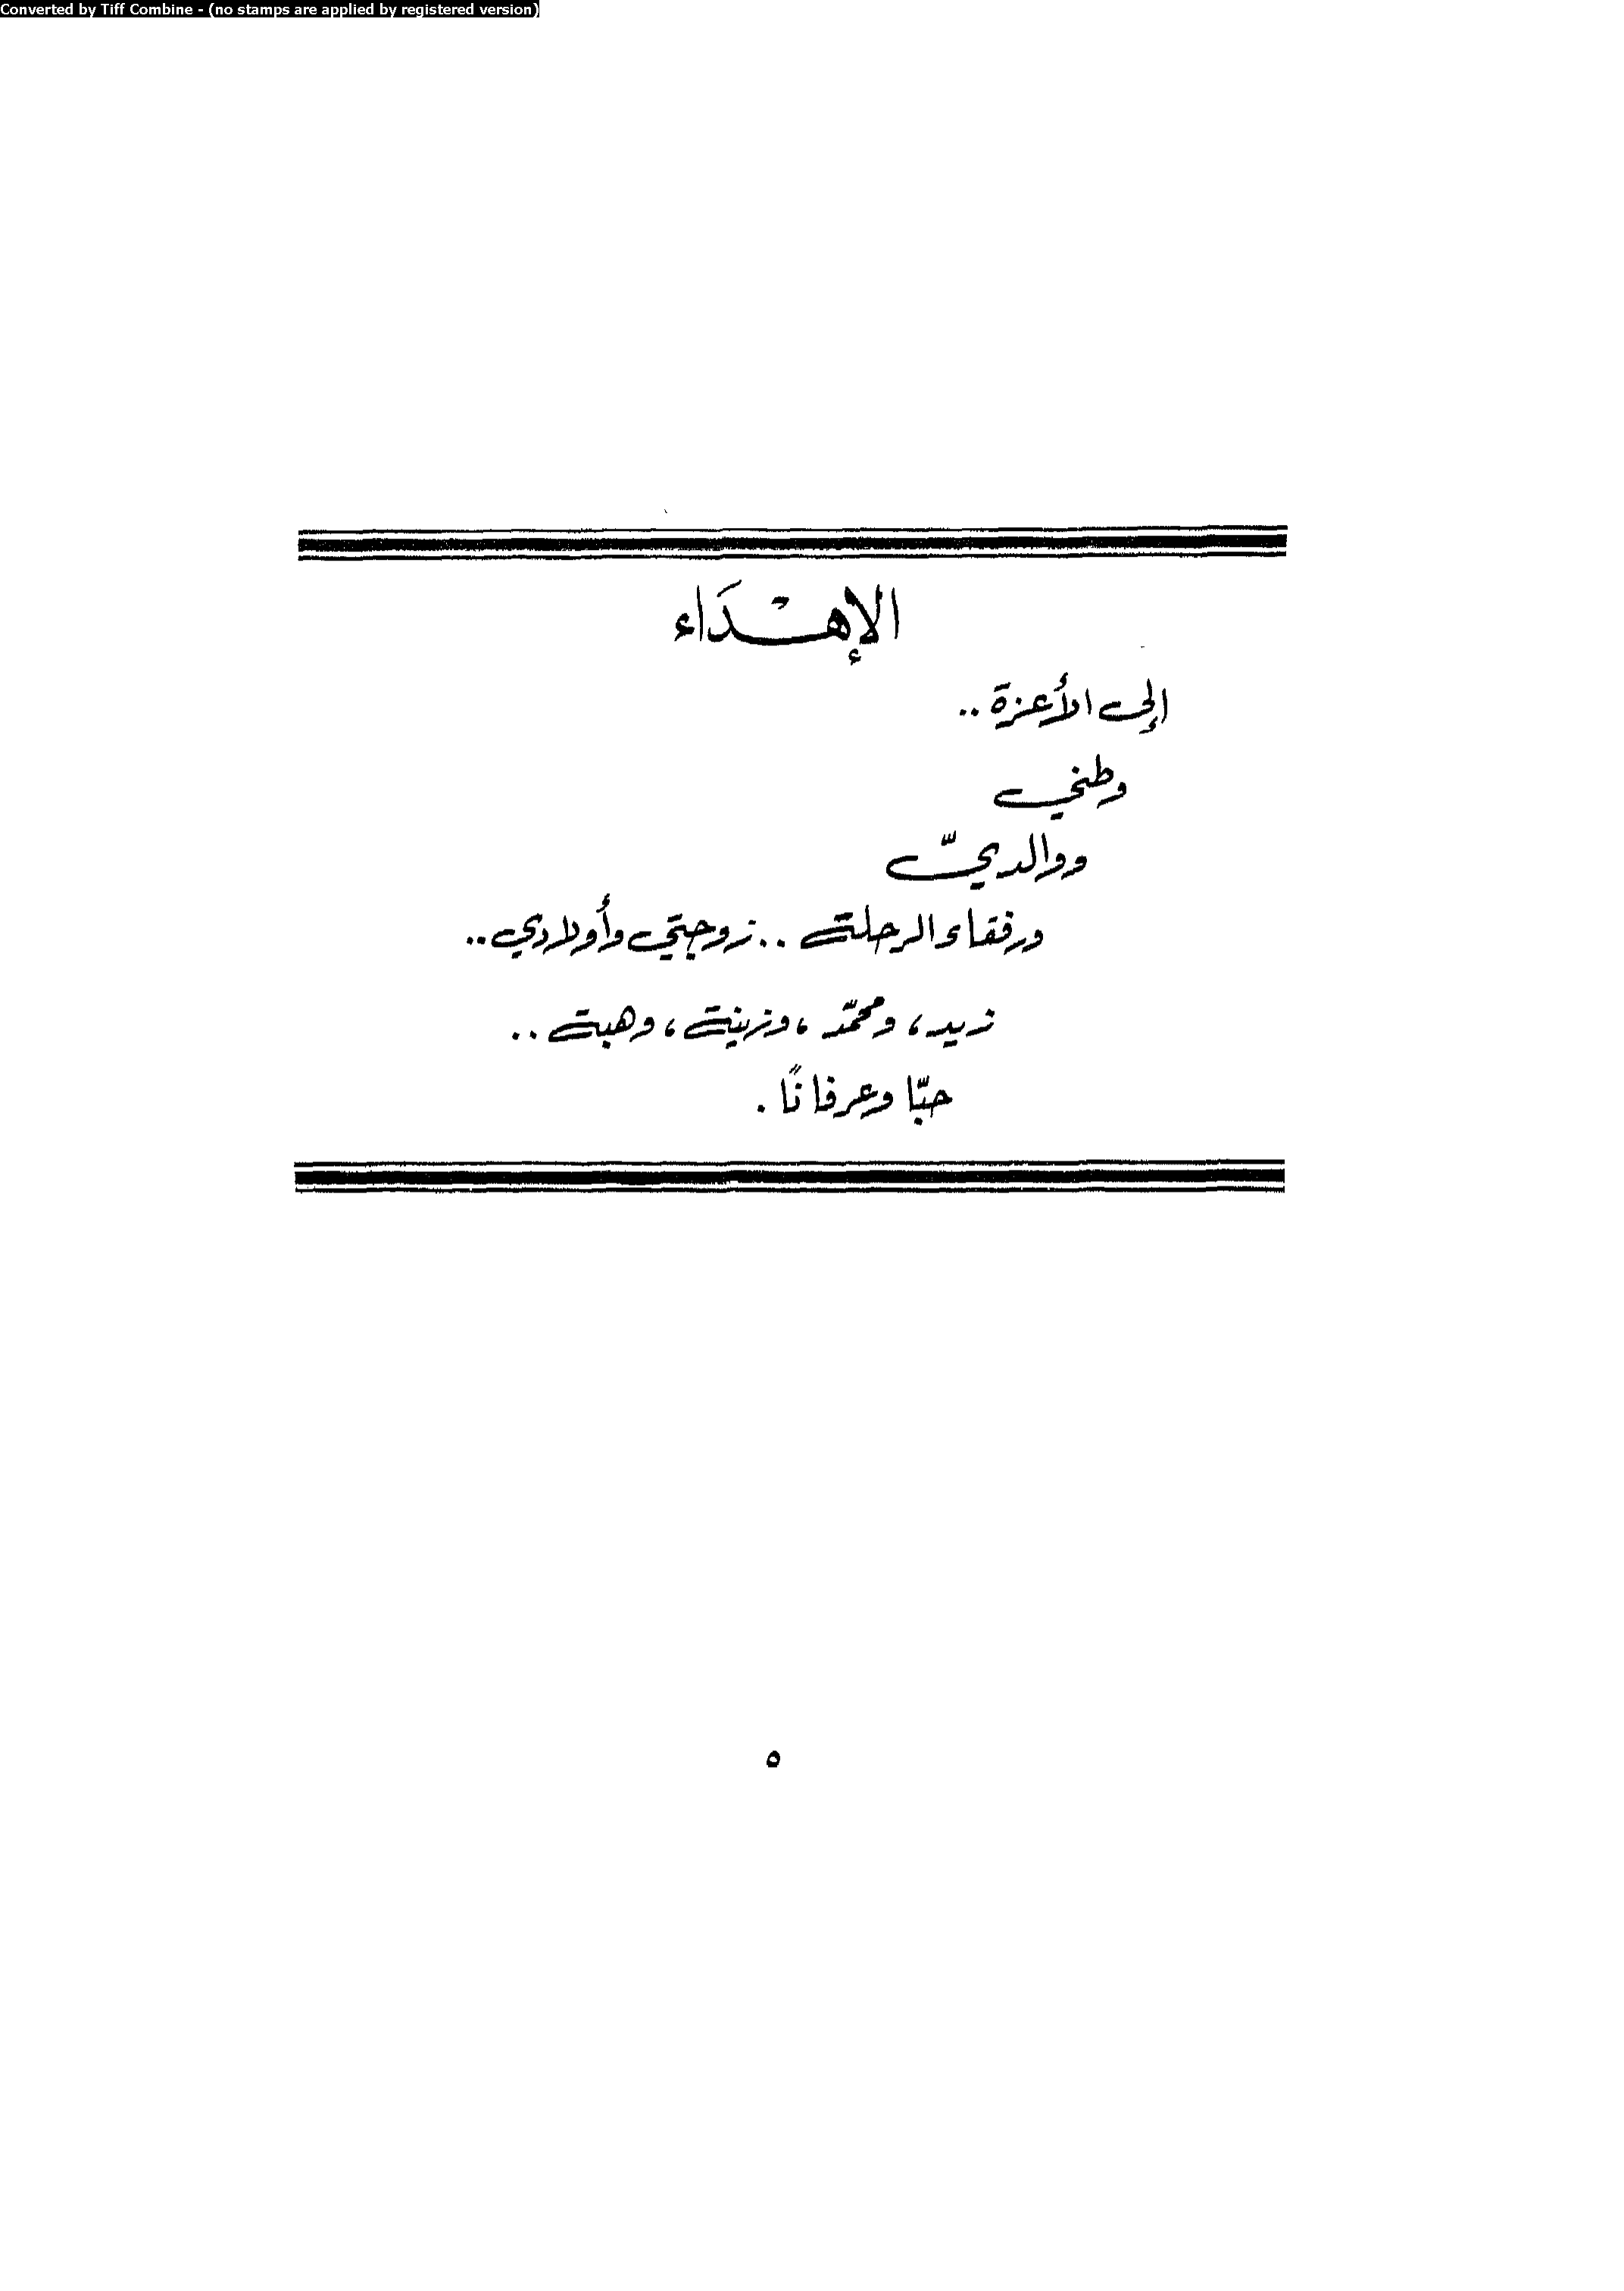 Converted by Tiff Combine - (no stamps are applied by registered version)
الإهْدَاء
إلى الأعزة ..
وطني
ووالديّ
ورفقاء الرحلة .. زوجتي وأولادي ..
زيد، ومحمّد، وزينة، وهبة ..
حبّا وعرفانًا .
٥